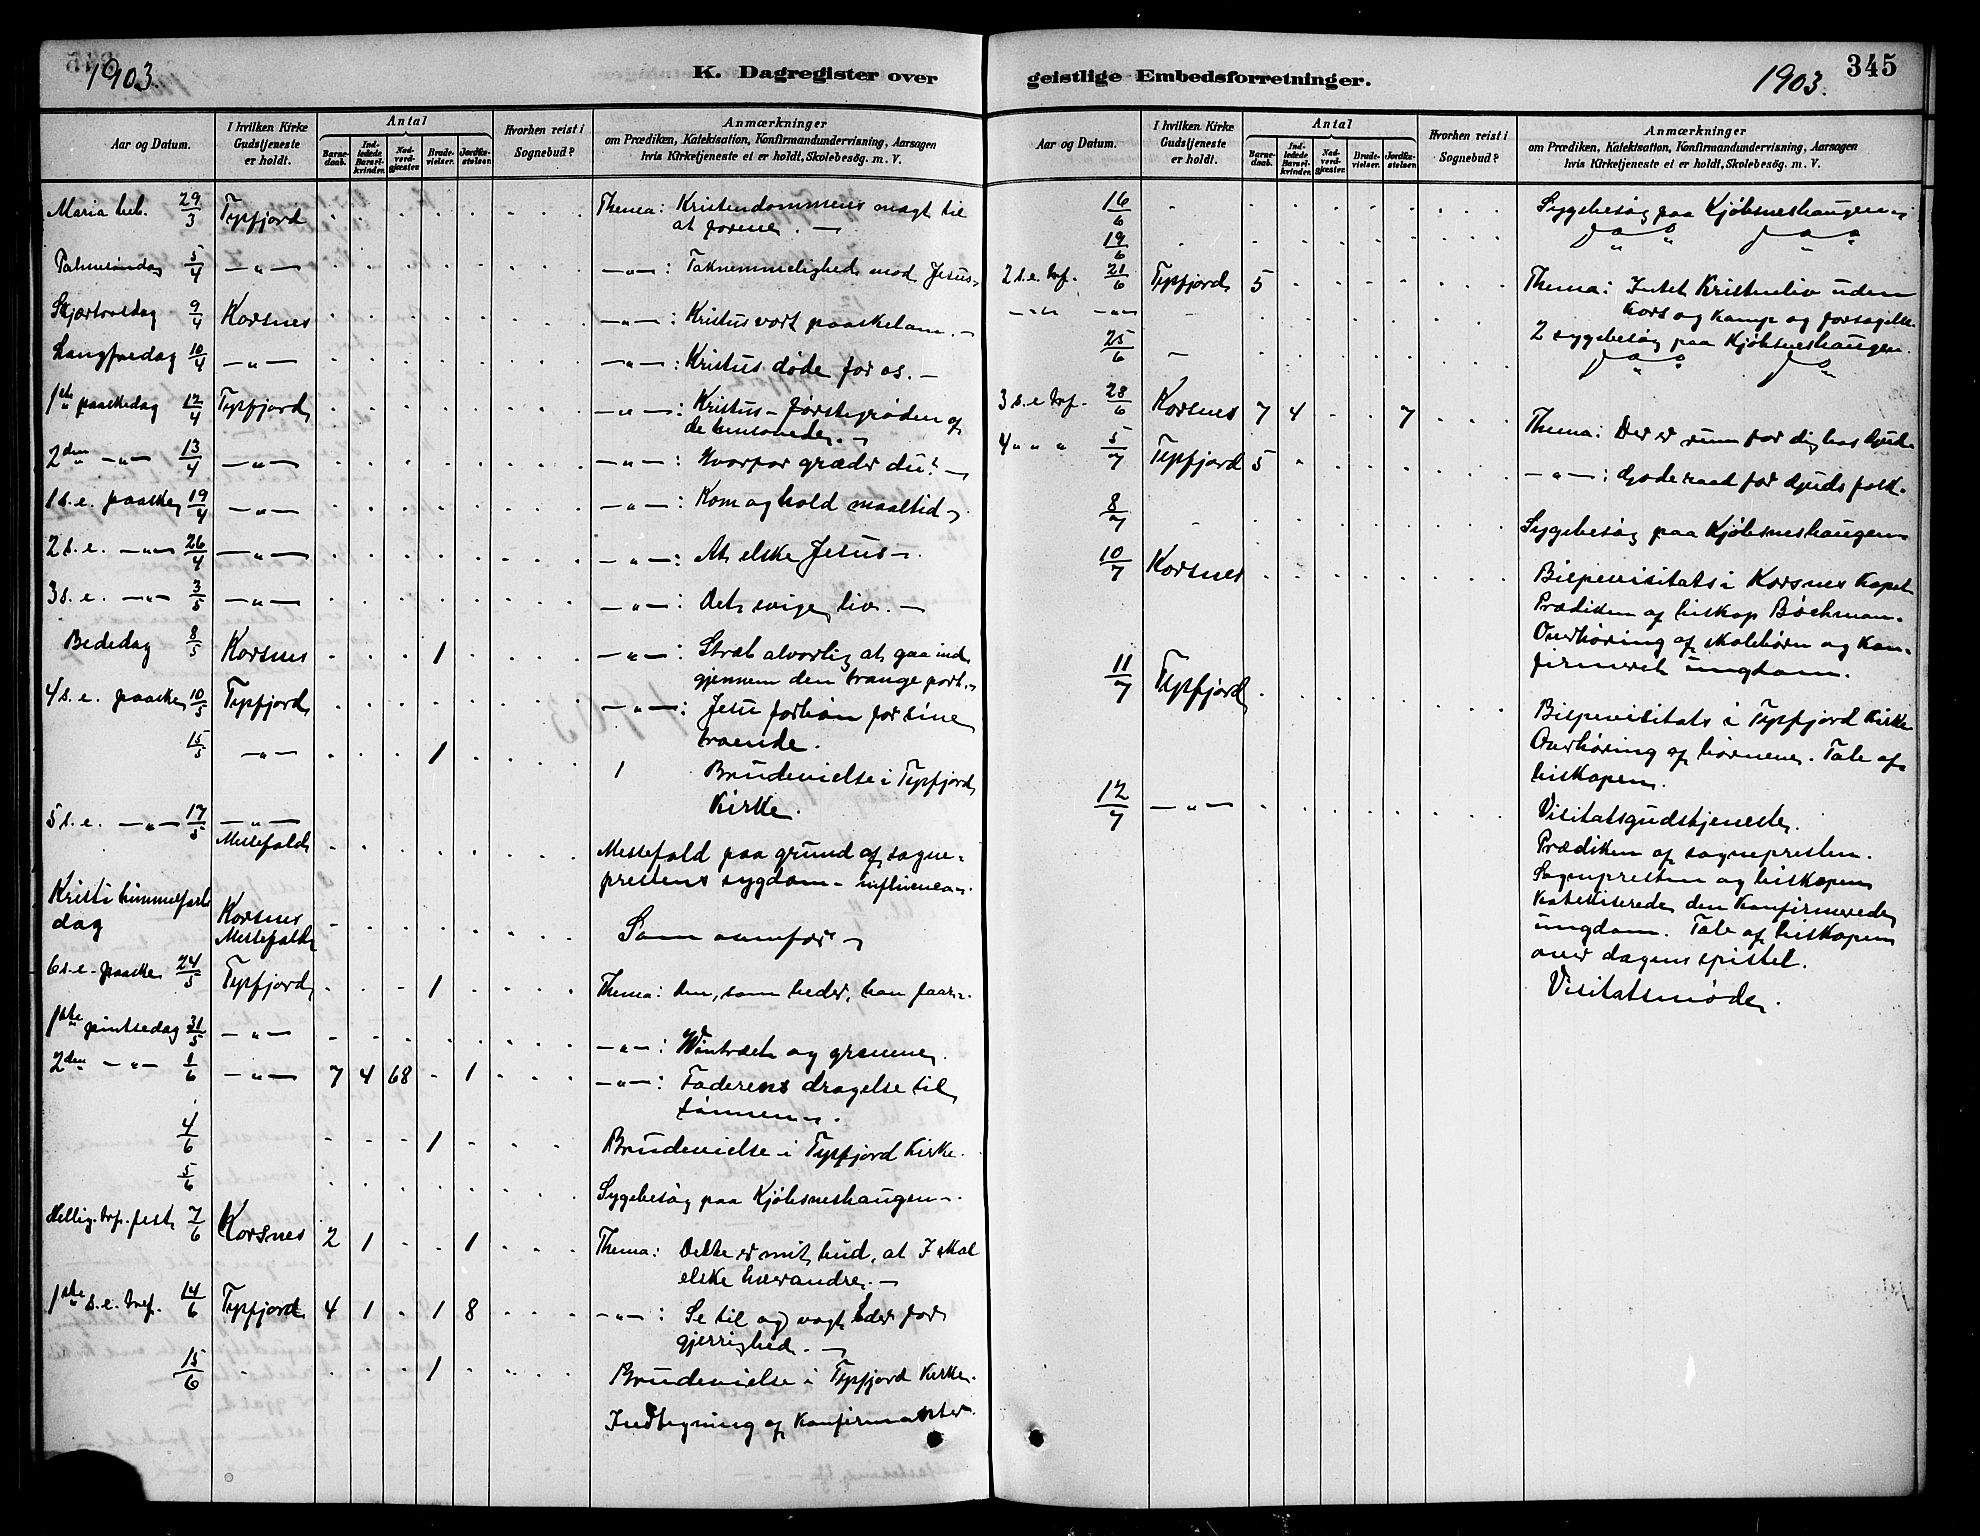 1903.
K. Dagregister over
Aar og Datum.
I hvilken Kirke Gudstjeneste er holdt.
Antal
Barnedaab.
Indledede Barselkvinder.
Nadverdgjester.
Brudevielser.
Jordfæstelser.
Hvorhen reist i Sognebud?
Anmærkninger
om Prædiken, Katekisation, Konfirmandundervisning, Aarsagen
hvis Kirketjeneste ei er holdt, Skolebesög. m. V.
Maria beb. 29/3 Tysfjord Thema: Kristendommens magt til
at forme. —
Palmesöndag 5/4 — " — — " —: Taknemmelighed mod Jesus -
Skjærtorsdag 9/4 Korsnes — " —: Kristus vort paaskelam. -
Langfredag 10/4 — " — — " —: Kristus døde for os. —
1ste paaskedag 12/4 Tysfjord — " —: Kristus - førstegrøden af
de hensovede. —
2den — " — 13/4 — " — — " —: Hvorfor græder du? —
1 s. e. paaske 19/4 — " — — " —: Kom og hold maaltid -
2 s. e. — " — 26/4 — " — — " —: At elske Jesus -.
3 s. e. — " — 3/5 — " — — " —: Det evige liv. —
Bededag 8/5 Korsnes 1 — " —: Stræb alvorlig at gaa ind
gjennem den trange port. -
4 s. e. paaske 10/5 Tysfjord — " —: Jesu forbøn for sine
troende.
15/5 — " — 1 1 Brudevielse i Tysfjord
Kirke.
5 s. e. — " — 17/5 — " —
Messefald Messefald paa grund af sogne-
prestens sygdom - influenza -.
Kristi himmelfarts
dag Korsnes
Messefald Som ovenfor -
6 s. e. paaske 24/5 Tysfjord 1 Thema: Den, som beder, han faar -.
1ste pintsedag 31/5 — " — — " —: Vintræet og grenene.
2den — " — 1/6 — " — 7 4 68 - 1 — " —: Faderens dragelse til
sønnen -.
4/6 1 Brudevielse i Tysfjord Kirke.
5/6 Sygebesøg paa Kjøbsneshaugen -.
Hellig. tref. fest 7/6 Korsnes 2 1 - - 1 Thema: Dette er mit bud, at I skal
elske hverandre. —
1ste s. e. tref. 14/6 Tysfjord 4 1 - 1 8 — " —: Se til og vogt Eder for
gjerrighed. —
15/6 1 Brudevielse i Tysfjord Kirke.
Indtegning af konfirmanter.
geistlige Embedsforretninger.
1903.
345
Aar og Datum.
I hvilken Kirke Gudstjeneste er holdt.
Antal
Barnedaab.
Indledede Barselkvinder.
Nadverdgjester.
Brudevielser.
Jordfæstelser.
Hvorhen reist i Sognebud?
Anmærkninger
om Prædiken, Katekisation, Konfirmandundervisning, Aarsagen
hvis Kirketjeneste ei er holdt, Skolebesög. m. V.
16/6 Sygebesøg paa Kjøbsneshaugen -
19/6
2 s. e. tref. 21/6 Tysfjord 5 Thema: Intet Kristenliv uden
— " — — " — Kors og kamp og forsagelse.
25/6 2 sygebesøg paa Kjøbsneshaugen.
3 s. e tref. 28/6 Korsnes 7 4 - - 7 Thema: Der er rum for dig hos Gud.
4 " " " 5/7 Tysfjord 5 — " —: Gode raad for Guds folk.
8/7 Sygebesøg paa Kjøbsneshaugen
10/7 Korsnes Bispevisitats i Korsnes Kapel
Prædiken af biskop Bøckman.
Overhøring af skolebørn og kon-
firmeret ungdom.
11/7 Tysfjord Bispevisitats i Tysfjord Kirke
Overhøring af børnene. Tale af
biskopen.
12/7 — " — Visitatsgudstjeneste.
Prædiken af sognepresten.
Sognepresten og biskopen
katekiserede den konfirmerede
ungdom. Tale af biskopen
over dagens epistel.
Visitatsmøde.